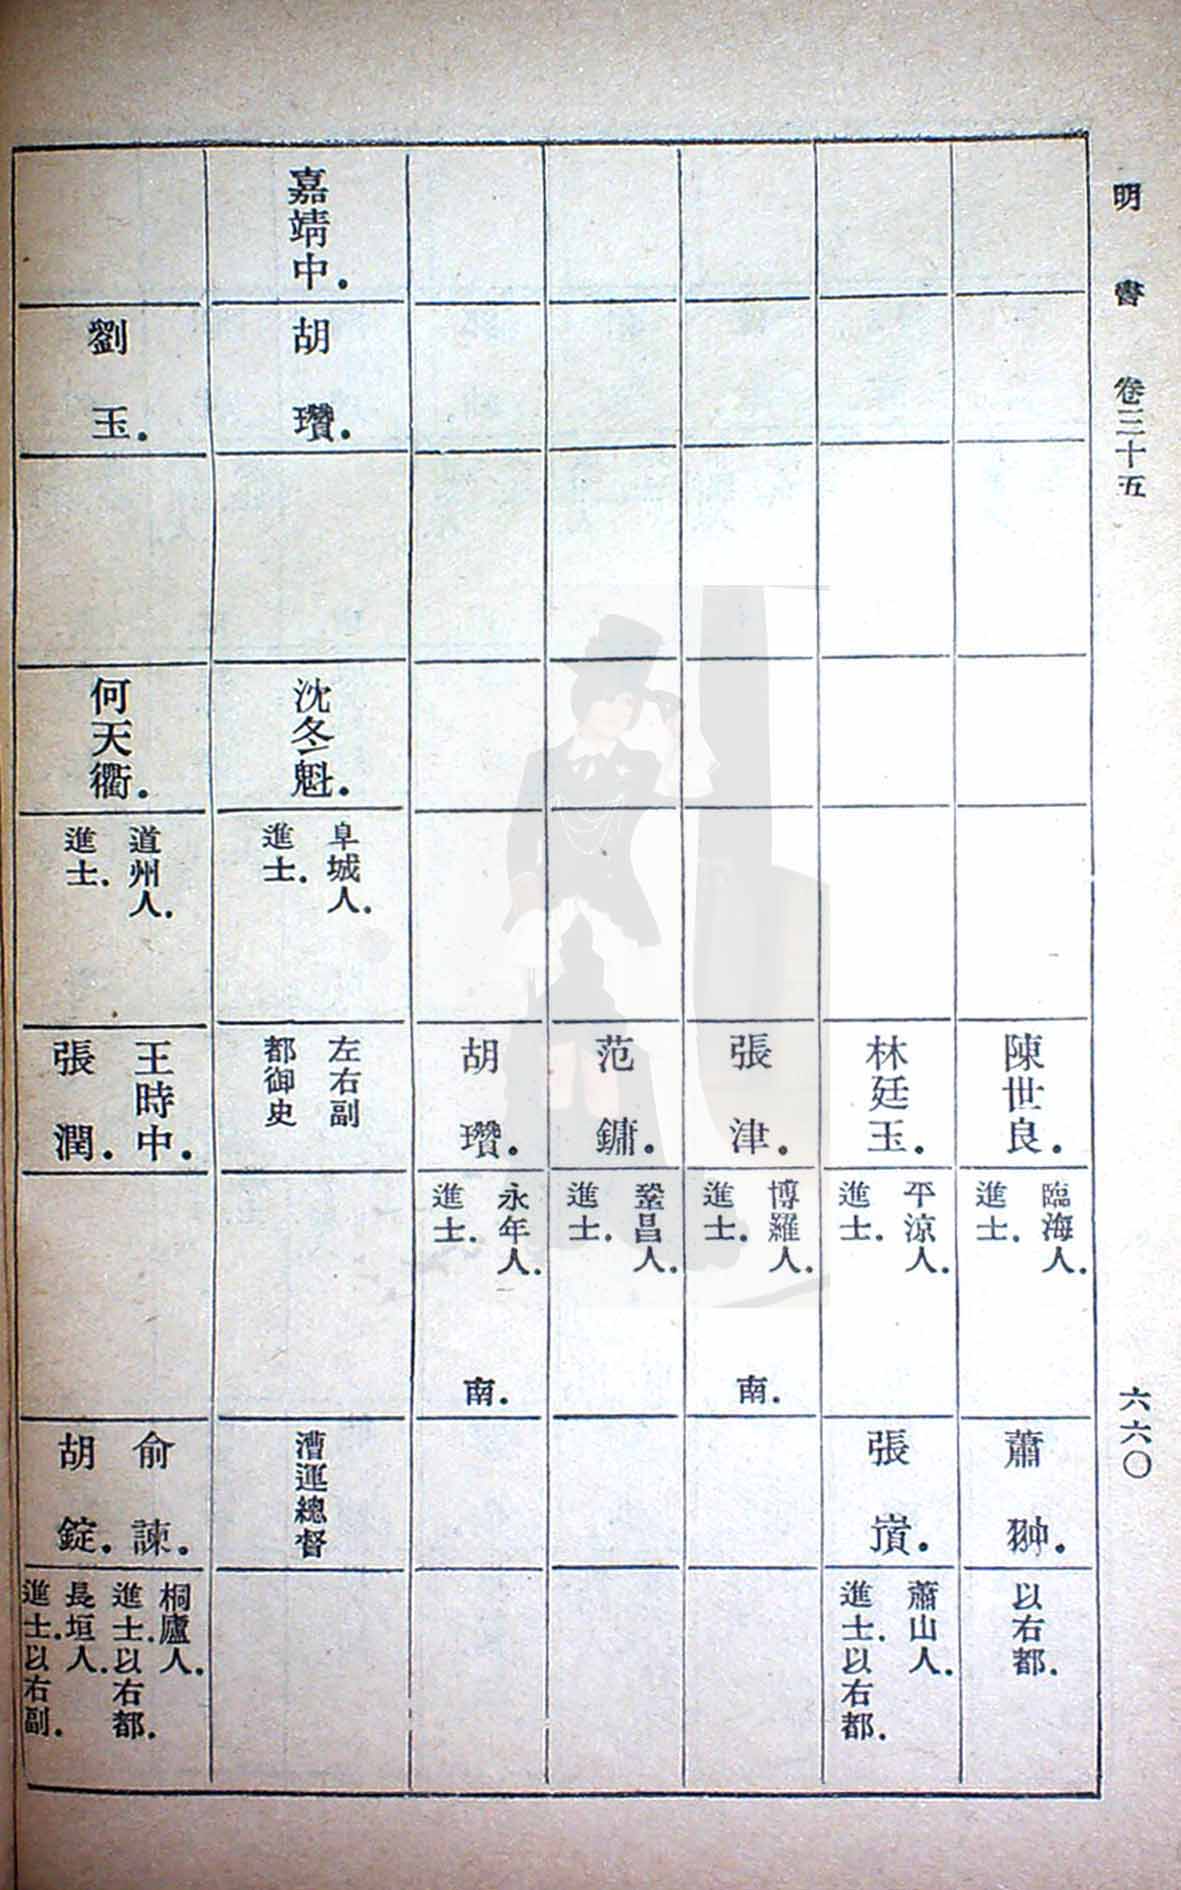 明書 卷三十五
六六〇
陳世良．
臨海人．
進士．
蕭翀．
以右都．
林廷玉．
平涼人．
進士．
張嵿．
蕭山人．
進士．以右都．
張津．
博羅人．
進士．
南．
范鏞．
鞏昌人．
進士．
胡瓚．
永年人．
進士．
南．
嘉靖中．
胡瓚．
沈冬魁．
阜城人．
進士．
左右副
都御史
漕運總督
劉玉．
何天衢．
道州人．
進士．
王時中．
張潤．
俞諫．
胡錠．
桐廬人．
進士．以右都．
長垣人．
進士．以右副．